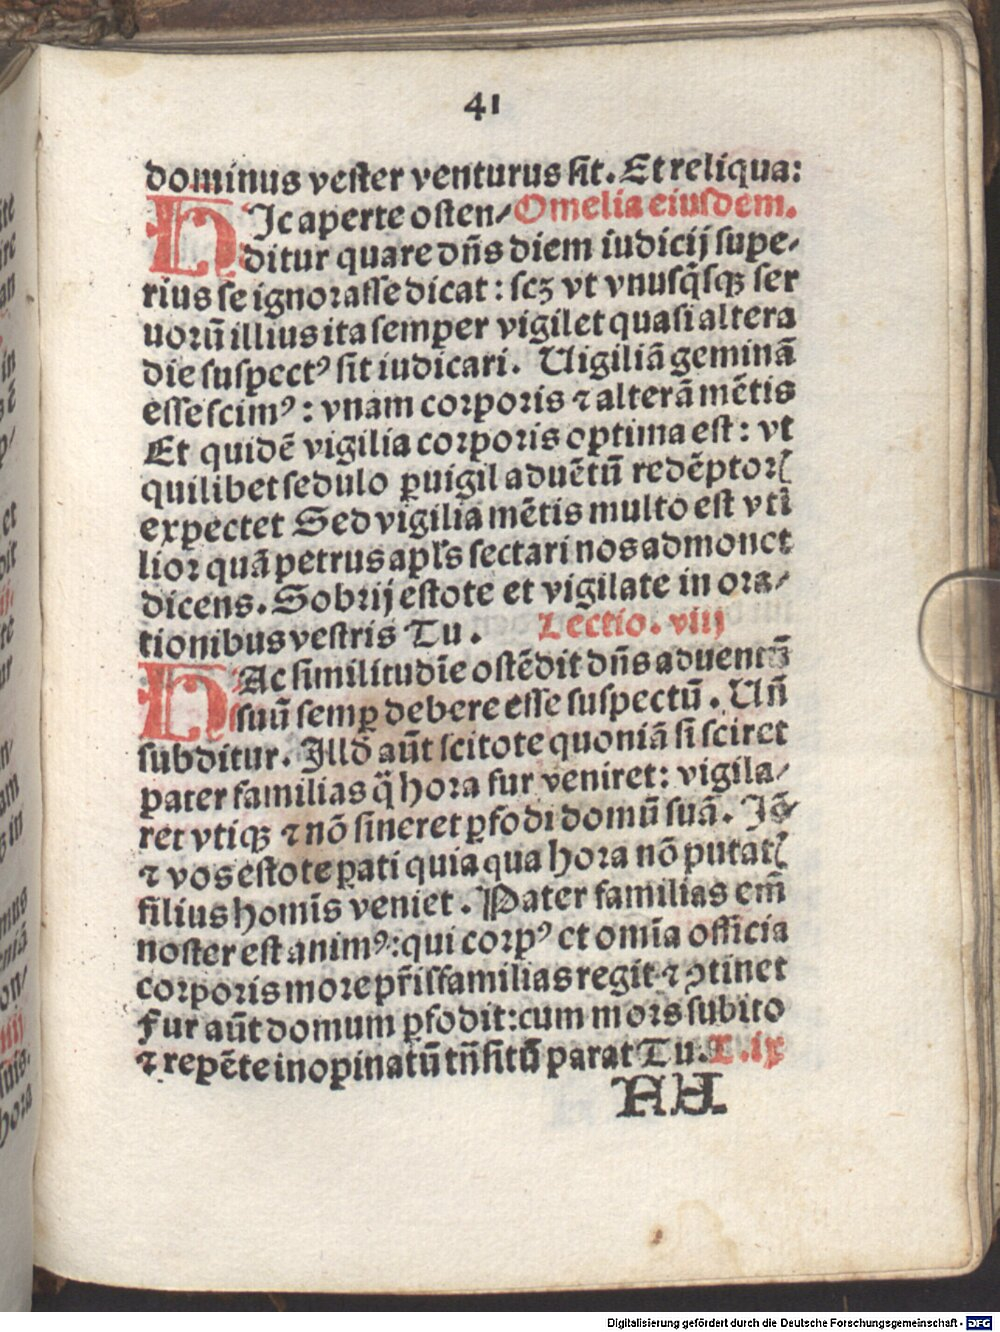 41
dominus vester venturus sit. Et reliqua:
HIc aperte osten⸗ Omelia eiusdem.
ditur quare dn̄s diem iudicij supe⸗
rius se ignorasse dicat : scꝫ vt vnusq̄sqꝫ ser
uorū illius ita semper vigilet quasi altera
die suspectꝰ sit iudicari. Uigiliā geminā
esse scimꝰ : vnam corporis ⁊ alterā mētis
Et quidē vigilia corporis optima est : vt
quilibet sedulo ꝑuigil aduētū redēptorꝭ
expectet Sed vigilia mētis multo est vti
lior quā petrus apl's sectari nos admonet
dicens. Sobrij estote et vigilate in ora⸗
tionibus vestris Tu. Lectio. viij
HAc similitudīe ostēdit dn̄s aduentū
suū semꝑ debere esse suspectū. Un̄
subditur. Illđ aūt scitote quoniā si sciret
pater familias q̄ hora fur veniret: vigila⸗
ret vtiqꝫ ⁊ nō sineret ꝑfodi domū suā. Iō
⁊ vos estote ꝑati quia qua hora nō putatꝭ
filius homīs veniet. Pater familias em̄
noster est animꝰ: qui corpꝰ et omīa officia
corporis more pr̄isfamilias regit ⁊ ꝯtinet
Fur aūt domum ꝑfodit: cum mors subito
⁊ repēte inopinatū tn̄ sitū parat Tu. L. ix
AA.
Digitalisierung gefördert durch die Deutsche Forschungsgemeinschaft - DFG